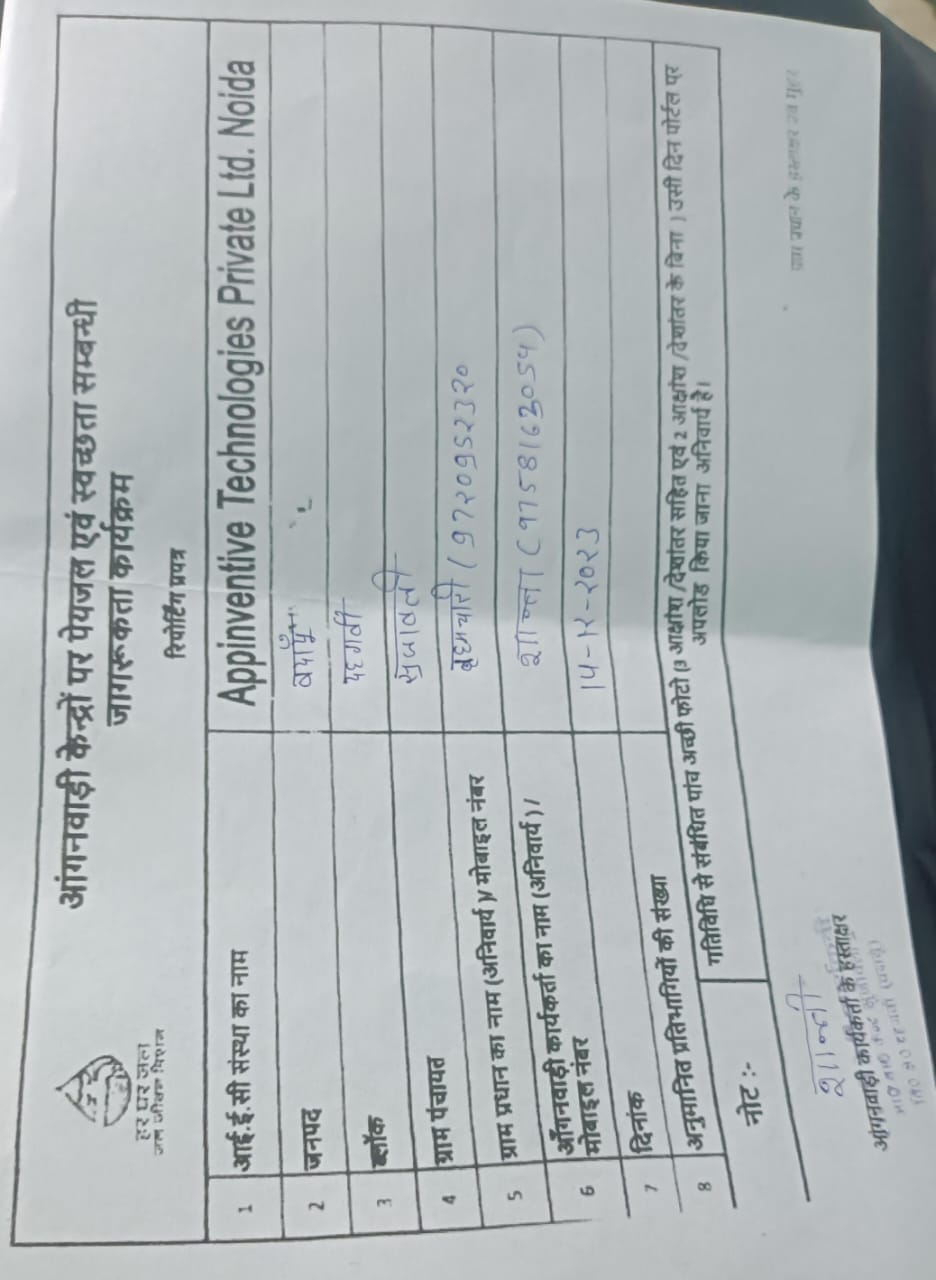 हर घर जल
जल जीवन मिशन
आंगनवाड़ी केन्द्रों पर पेयजल एवं स्वच्छता सम्बन्धी
जागरूकता कार्यक्रम
रिपोर्टिंग प्रपत्र
1 आई.ई.सी संस्था का नाम Appinventive Technologies Private Ltd. Noida
2 जनपद बदायूँ
3 ब्लॉक दहगवाँ
4 ग्राम पंचायत सुजावली
5 ग्राम प्रधान का नाम (अनिवार्य)/ मोबाइल नंबर (9720952320
6 आँगनवाड़ी कार्यकर्ता का नाम (अनिवार्य) / शान्ता (9758163054)
मोबाइल नंबर
7 दिनांक 14-12-2023
8 अनुमानित प्रतिभागियों की संख्या
नोट :- गतिविधि से संबंधित पांच अच्छी फोटो (3 आक्षांश /देशांतर सहित एवं 2 आक्षांश /देशांतर के बिना ) उसी दिन पोर्टल पर
अपलोड किया जाना अनिवार्य है।
शान्ती
आंगनवाड़ी कार्यकर्ता के हस्ताक्षर
ग्राम प्रधान के हस्ताक्षर एवं मुहर